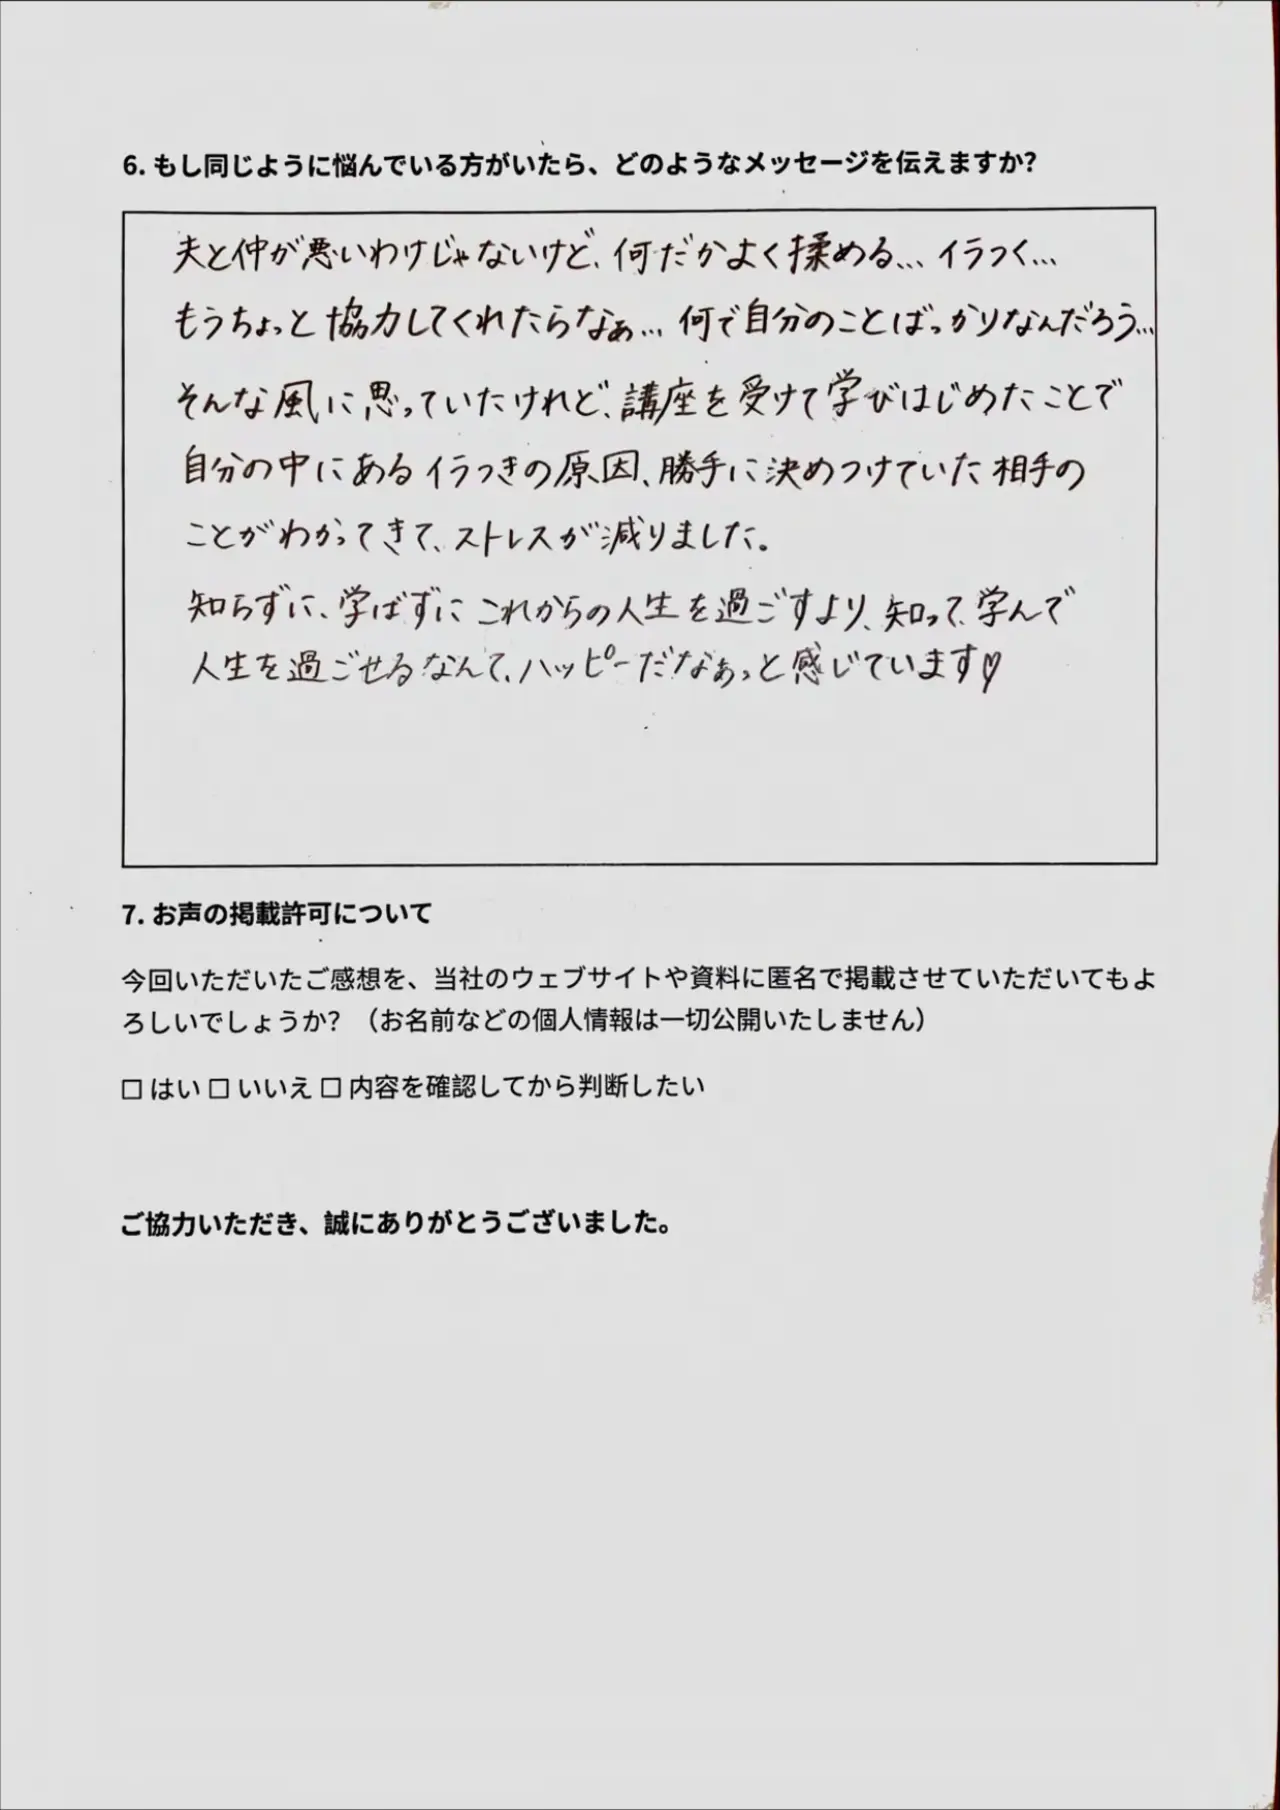 6. もし同じように悩んでいる方がいたら、どのようなメッセージを伝えますか?
夫と仲が悪いわけじゃないけど、何だかよく揉める... イラつく...
もうちょっと協力してくれたらなぁ... 何で自分のことばっかりなんだろう...
そんな風に思っていたけれど、講座を受けて学びはじめたことで
自分の中にあるイラつきの原因、勝手に決めつけていた相手の
ことがわかってきて、ストレスが減りました。
知らずに、学ばずにこれからの人生を過ごすより、知って、学んで
人生を過ごせるなんて、ハッピーだなぁっと感じています♡
7. お声の掲載許可について
今回いただいたご感想を、当社のウェブサイトや資料に匿名で掲載させていただいてもよ
ろしいでしょうか?（お名前などの個人情報は一切公開いたしません）
□ はい □ いいえ □ 内容を確認してから判断したい
ご協力いただき、誠にありがとうございました。